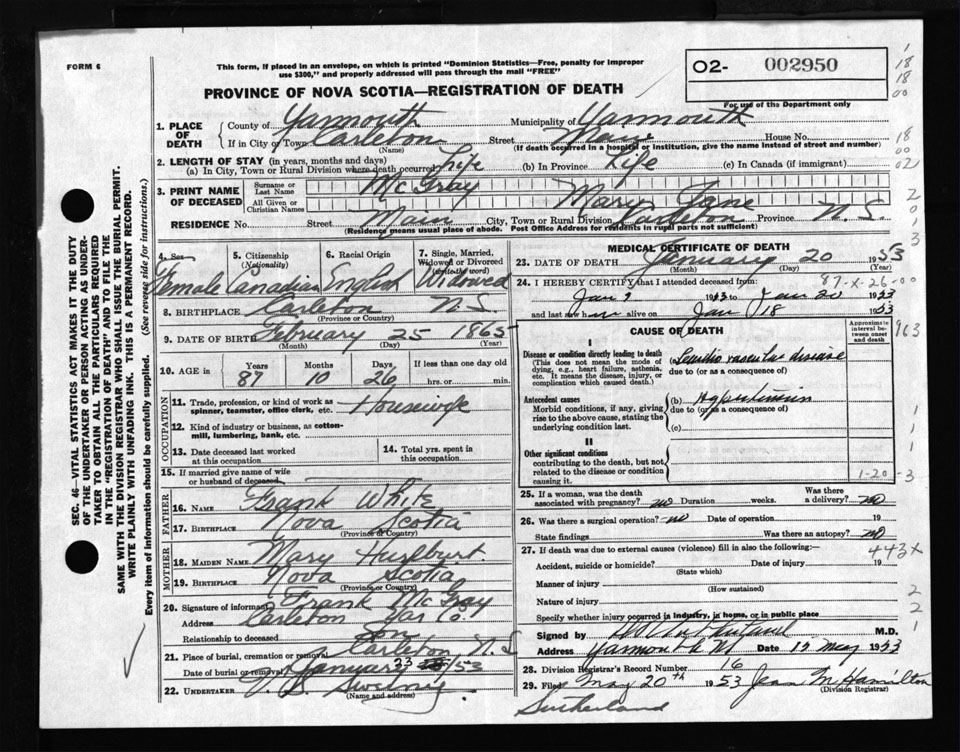 FORM 6
This form, if placed in an envelope, on which is printed "Dominion Statistics—Free, penalty for improper use $300," and properly addressed will pass through the mail "FREE"
O2- 002950
For use of the Department only
PROVINCE OF NOVA SCOTIA—REGISTRATION OF DEATH
1. PLACE OF DEATH County of Yarmouth Municipality of Yarmouth
If in City or Town Carleton (Name) Street Main House No.
(If death occurred in a hospital or institution, give the name instead of street and number)
2. LENGTH OF STAY (in years, months and days)
(a) In City, Town or Rural Division where death occurred Life (b) In Province Life (c) In Canada (if immigrant)
3. PRINT NAME OF DECEASED Surname or Last Name McGray
All Given or Christian Names Mary Jane
RESIDENCE No. Street Main City, Town or Rural Division Carleton Province N.S.
(Residence means usual place of abode. Post Office Address for residents in rural parts not sufficient)
4. Sex Female
5. Citizenship (Nationality) Canadian
6. Racial Origin English
7. Single, Married, Widowed or Divorced (write the word) Widowed
8. BIRTHPLACE Carleton N.S. (Province or Country)
9. DATE OF BIRTH February 25 1865 (Month) (Day) (Year)
10. AGE in Years 87 Months 10 Days 26 If less than one day old hrs. or min.
OCCUPATION
11. Trade, profession, or kind of work as spinner, teamster, office clerk, etc. Housewife
12. Kind of industry or business, as cotton-mill, lumbering, bank, etc.
13. Date deceased last worked at this occupation
14. Total yrs. spent in this occupation
15. If married give name of wife or husband of deceased
FATHER
16. NAME Frank White
17. BIRTHPLACE Nova Scotia (Province or Country)
MOTHER
18. MAIDEN NAME Mary Hurlburt
19. BIRTHPLACE Nova Scotia (Province or Country)
20. Signature of informant Frank McGray
Address Carleton Yar Co.
Relationship to deceased Son
21. Place of burial, cremation or removal Carleton N.S
Date of burial or removal January 23 /53
22. UNDERTAKER Sweeny (Name and address)
MEDICAL CERTIFICATE OF DEATH
23. DATE OF DEATH January 20 1953 (Month) (Day) (Year)
24. I HEREBY CERTIFY that I attended deceased from: 87-X-26-00
Jan 1953 to Jan 20 1953
and last saw alive on Jan 18 1953
CAUSE OF DEATH
Approximate interval between onset and death
I
Disease or condition directly leading to death
(This does not mean the mode of dying, e.g., heart failure, asthenia, etc. It means the disease, injury, or complication which caused death.)
(a) vascular disease
due to (or as a consequence of)
Antecedent causes
Morbid conditions, if any, giving rise to the above cause, stating the underlying condition last.
(b) Hypertension
due to (or as a consequence of)
(c)
II
Other significant conditions
contributing to the death, but not related to the disease or condition causing it.
1-20-3
25. If a woman, was the death associated with pregnancy? no Duration weeks. Was there a delivery? no
26. Was there a surgical operation? no Date of operation 19
State findings Was there an autopsy? no
27. If death was due to external causes (violence) fill in also the following:— 443X
Accident, suicide or homicide? (State which) Date of injury 19
Manner of injury (How sustained)
Nature of injury
Specify whether injury occurred in industry, in home, or in public place
Signed by M.D.
Address Yarmouth NS Date 12 May 1953
28. Division Registrar's Record Number 16
29. Filed May 20th 1953 Jean M Hamilton (Division Registrar)
Sutherland
SEC. 46—VITAL STATISTICS ACT MAKES IT THE DUTY OF THE UNDERTAKER OR PERSON ACTING AS UNDERTAKER TO OBTAIN ALL THE PARTICULARS REQUIRED IN THE "REGISTRATION OF DEATH" AND TO FILE THE SAME WITH THE DIVISION REGISTRAR WHO SHALL ISSUE THE BURIAL PERMIT.
WRITE PLAINLY WITH UNFADING INK. THIS IS A PERMANENT RECORD.
Every item of information should be carefully supplied. (See reverse side for instructions.)